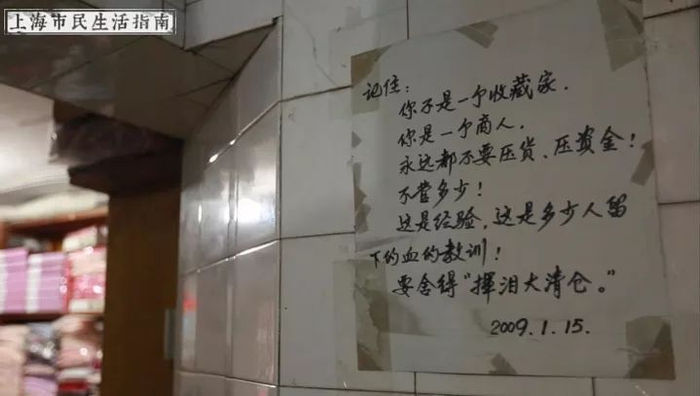 上海市民生活指南
记住：
你不是一个收藏家．
你是一个商人．
永远都不要压货、压资金！
不管多少！
这是经验，这是多少人留
下的血的教训！
要舍得“挥泪大清仓。”
2009.1.15.